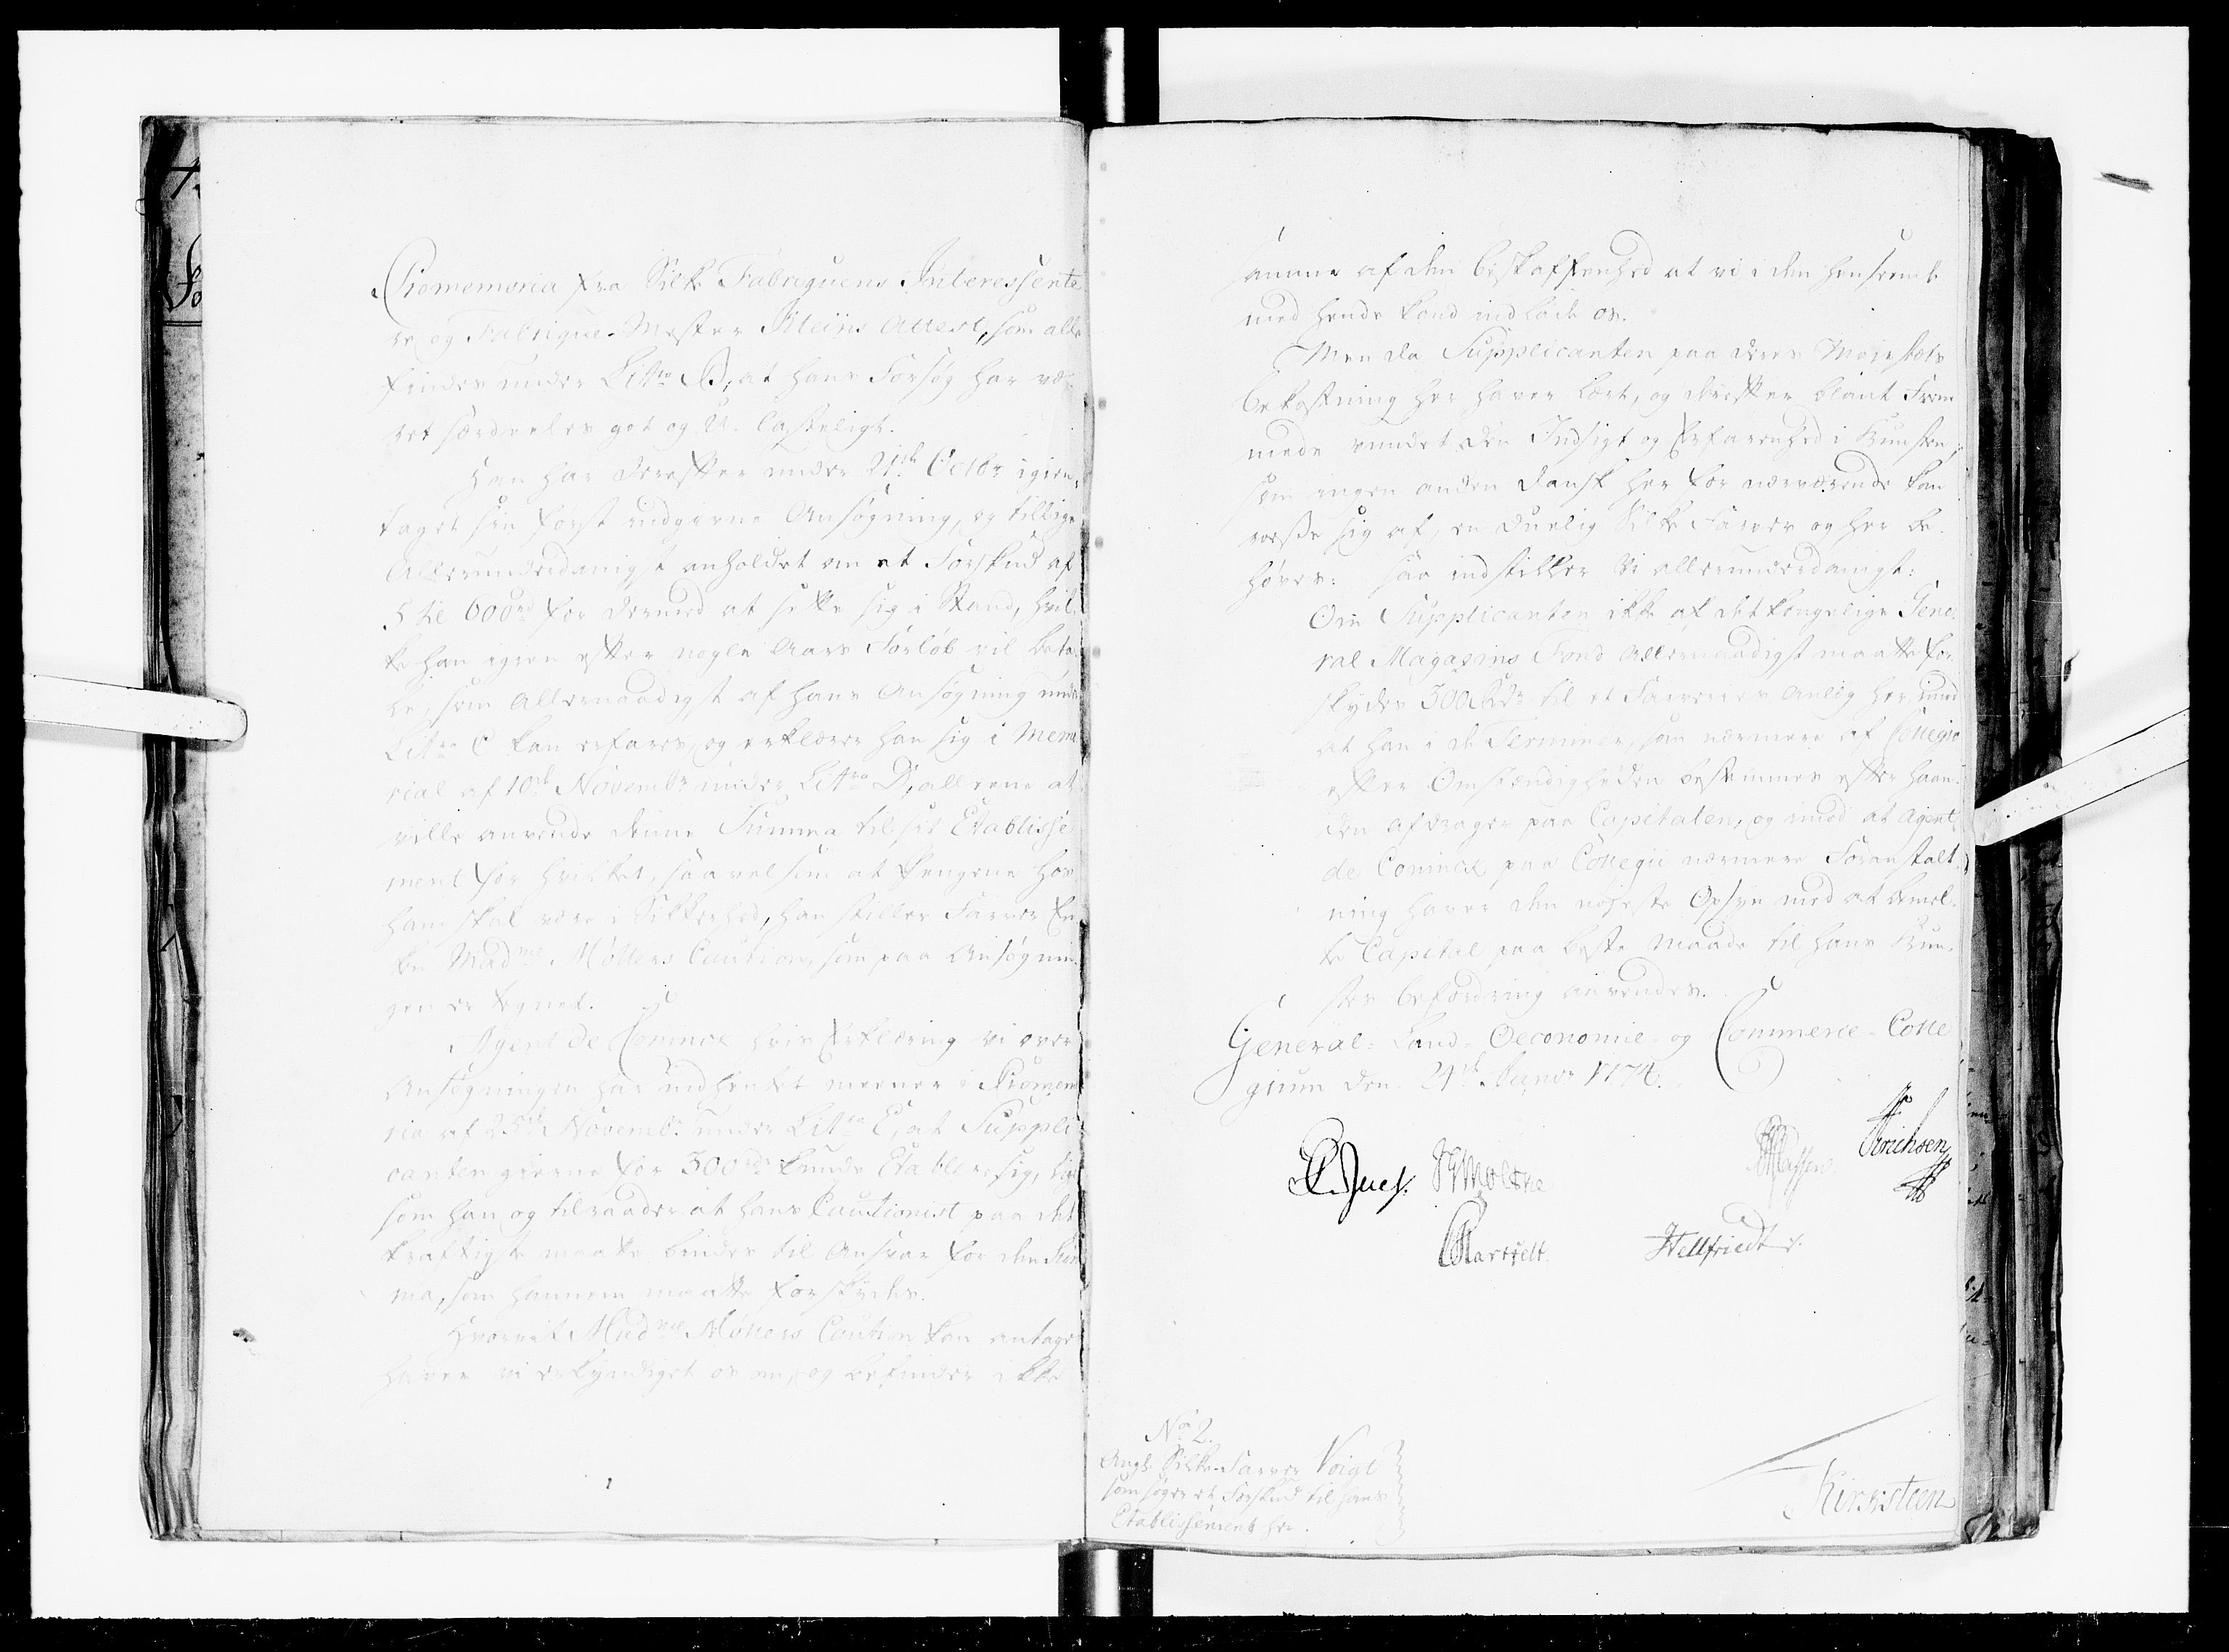 Promemoria fra Silke Fabriquens Interessente
re og Fabrique-Mester Kleins Attest, som alle
findes under Littra B, at hans Forsøg har væ-
ret særdeeles got og U-lasteligt.
Han har derefter under 21de Octbr igien-
taget sin først indgivne Ansøgning, og tillige
Allerunderdanigst anholdet om et Forskud af
5 til 600rd for dermed at sette sig i Stand, hvil-
ke han igien efter nogle Aars Forløb vil beta-
le, som Allernaadigst af hans Ansøgning under
Littra C kan erfares, og erklærer han sig i Memo-
rial af 10de Novembr under Littra D, alleene at
ville anvende denne Summa til sit Etablisse-
ment for hvilket, saavelsom at Pengene hos
ham skal være i Sikkerhed, han stiller Farver En-
ke Madme Møllers Caution, som paa Ansøgnin-
gen er tegnet.
Agent de Coninck hvis Erklæring vi over
Ansøgningen har indhentet meener i Promemo-
ria af 25de Novembr under Littra E, at Suppli-
canten gierne for 300rd kunde Etablere sig, lige-
som han og tilraader at hans Cautionist paa det
kraftigste maatte bindes til Ansvar for den Sum-
ma, som hannem maatte forskydes.
Hvorvit Madme Møllers Caution kan antages
haver vi erkyndiget os om, og befinder ikke
samme af den beskaffenhed at vi i den henseende
med hende kand indlade os.
Men da Supplicanten paa Deres Majestæts
bekostning her haver lært, og derefter blant Frem-
mede vundet den Indsigt og Erfarenhed i Kunsten,
som ingen anden dansk her for nærværende kan
roese sig af, en duelig Silke Farver og her be-
høves: saa indstiller Vi allerunderdanigst:
Om Supplicanten ikke af det kongelige Gene-
ral Magazins Fond Allernaadigst maatte for-
skydes 300 Rdr til et Farveries Anlæg her imod
at han i de Terminer, som nærmere af Collegio
efter Omstændigheden bestemmes efter haan-
den afdrager paa Capitalen, og imod at Agent
de Coninck paa Collegii nærmere Foranstalt-
ning haver den nøyeste Opsyn med at bemel-
te Capital paa beste Maade til hans Kun-
stes befordring anvendes.
General- Land- Oeconomie- og Commerce-Colle
gium den 24de Janvr 1774.
Juel. Moltke Classen Erichsen
Martfelt. Hellfriedt
No 2.
Angl. Silke-Farver Voigt
som søger et Forskud til hans
Etablissement her.
Kirstein